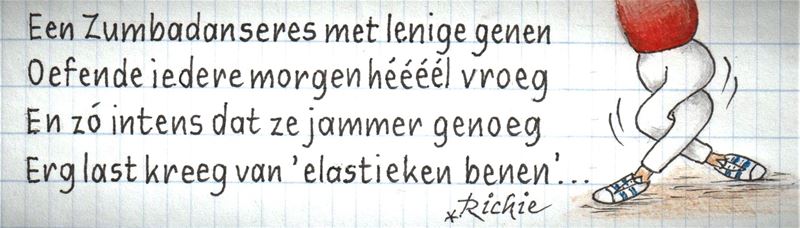 Een Zumbadanseres met lenige genen
Oefende iedere morgen héééél vroeg
En zó intens dat ze jammer genoeg
Erg last kreeg van 'elastieken benen'...
*Richie